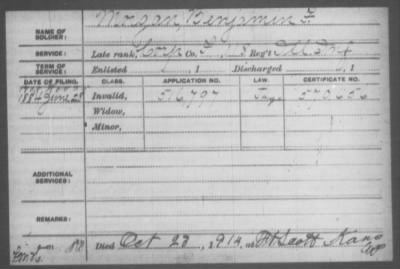 NAME OF SOLDIER: Morgan, Benjamin F
SERVICE: Late rank, Corp Co. F, Reg't Ill. Inf
TERM OF SERVICE: Enlisted , 1 Discharged , 1
DATE OF FILING. CLASS. APPLICATION NO. LAW. CERTIFICATE NO.
1884 June 28 Invalid, 516,797 570.656
Widow,
Minor,
ADDITIONAL SERVICES:
REMARKS:
Died Oct 23, 1914, at Ft Scott Kans